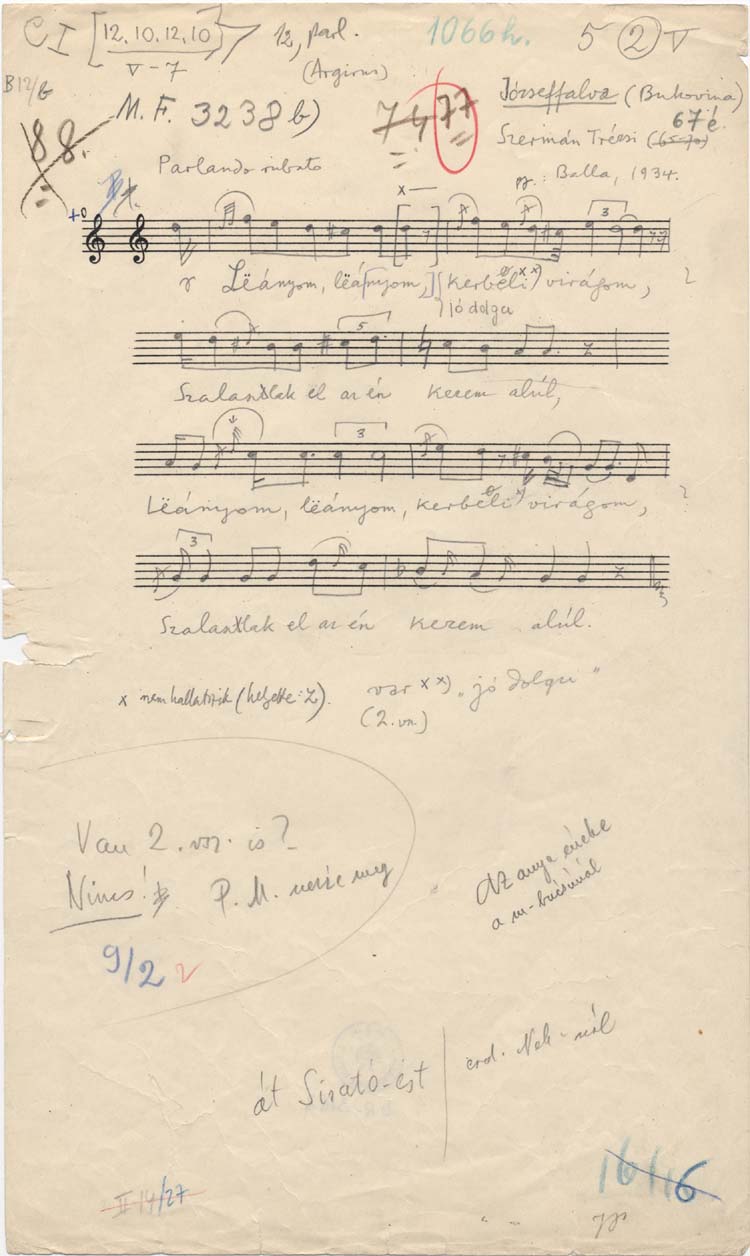 C I [12. 10. 12. 10] 12, parl. 1066 h. 5 ② V
V-7 (Argirus)
B 12/b
M. F. 3238 b) 7477 Józseffalva (Bukovina)
88. 67 é.
Szermán Trézsi (65-70)
Parlando rubato gy.: Balla, 1934.
x
3
Lëányom, lëányom, kerbéli xx) virágom, ?
jó dolgu
5
Szalasztlak el az én kezem alúl,
3
Lëányom, lëányom, kerbéli x) virágom, ?
3
Szalasztlak el az én kezem alúl.
x nem hallatszik (helyette: ). var xx) „jó dolgu"
(2. vsz.)
Van 2. vsz. is?
Nincs! P. M. nézte meg
Az anya éneke
a m-búcsúnál
9/2 2
át Sirató-est
16/16
II 14/27